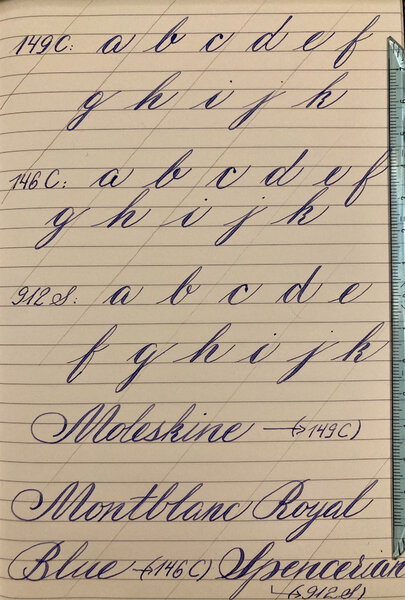 149C: a b c d e f
g h i j k
146C: a b c d e f
g h i j k
912S: a b c d e
f g h i j k
Moleskine → 149C)
Montblanc Royal
Blue → 146C) Spencerian
→ 912S)